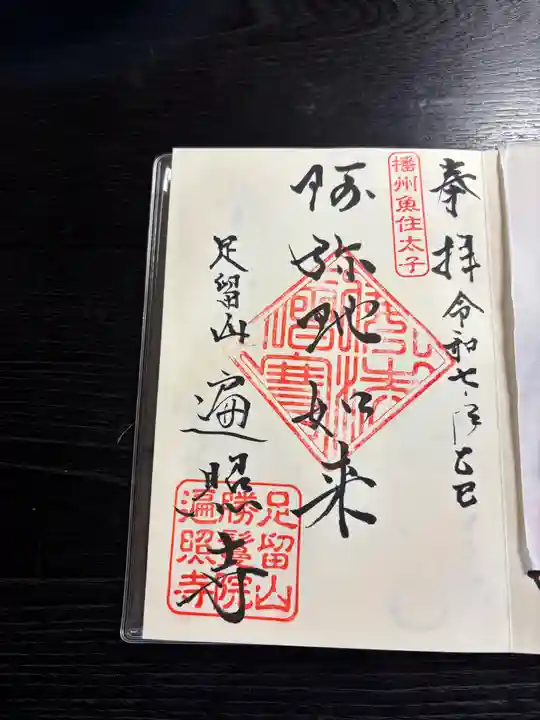 播州魚住太子
奉拝 令和七年 乙巳
阿弥陀如来
仏法僧寶
足留山 遍照寺
足留山
勝鬘院
遍照寺